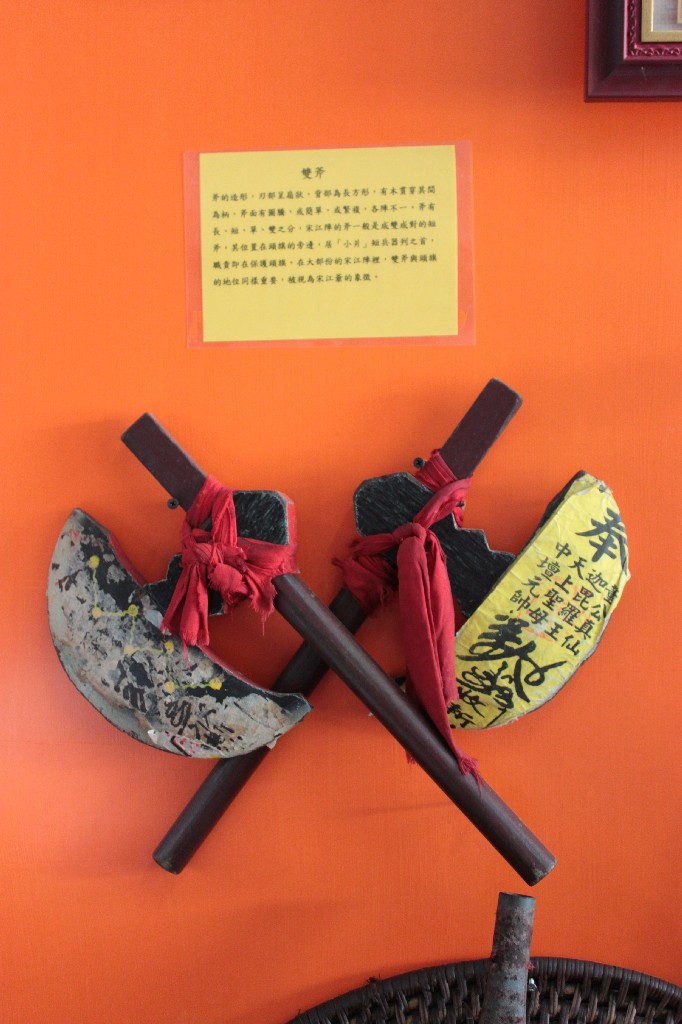 雙斧
斧的造形，刃部呈扇狀，背部為長方形，有木貫穿其間
為柄，斧面有圖騰，或簡單，或繁複，各陣不一。斧有
長、短、單、雙之分，宋江陣的斧一般是成雙成對的短
斧。其位置在頭旗的旁邊，居「小片」短兵器列之首，
職責即在保護頭旗。在大部份的宋江陣裡，雙斧與頭旗
的地位同樣重要，被視為宋江爺的象徵。
奉
公真仙
迦毘羅王
天上聖母
中壇元帥